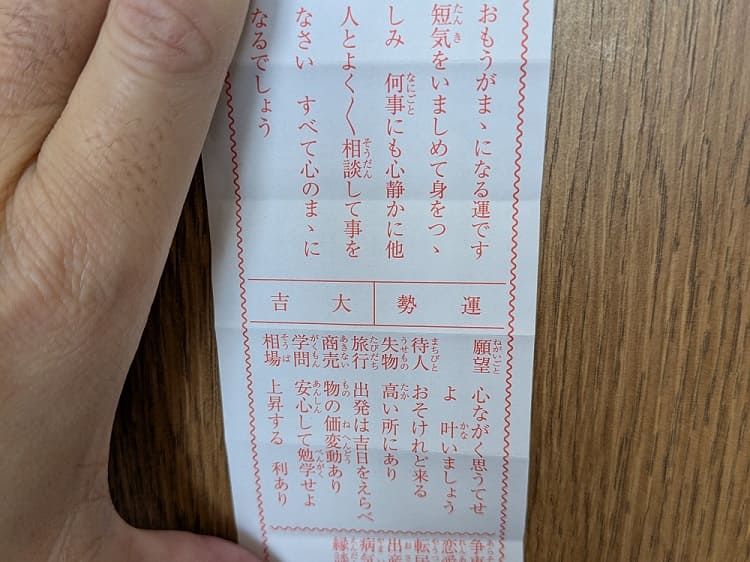 おもうがまゝになる運です
短気をいましめて身をつゝ
しみ　何事にも心静かに他
人とよく〳〵相談して事を
なさい　すべて心のまゝに
なるでしょう
運勢　大吉
願望　心ながく思うてせ
よ　叶いましょう
待人　おそけれど来る
失物　高い所にあり
旅行　出発は吉日をえらべ
商売　物の価変動あり
学問　安心して勉学せよ
相場　上昇する　利あり
争事
恋愛
転居
出産
病気
縁談